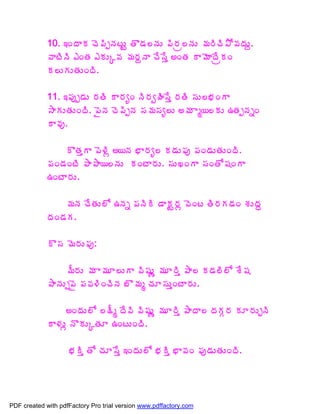 10. ఇందాక చెప్పినట్టు తొడలను పిర్రలను మరిచిపోవద్దు.
వాటిని ఎంత ఎక్కువ మర్దనా చేస్తే అంత కామోద్రేకం
కలుగుతుంది.
11. ఇప్పుడు రతి కార్యం నిర్వర్తిస్తే రతి సులభంగా
సాగుతుంది. పైన చెప్పిన సమస్యలు అమ్మాయిలకు ఉత్పన్నం
కావు.
కొత్తగా పెళ్లి అయిన భార్యల కడుపు పండుతుంది.
పండంటి పాపాయిలను కంటారు. సుఖంగా సంతోషంగా
ఉంటారు.
మన చేతులో ఉన్న పనికి డాక్టర్ల వెంట తిరగడం శుద్ధ
దండగ.
కొస మెరుపు:
మీరు మామూలుగా విష్ణు మూర్తి పాల కడలిలో శేష
పానుపుపై పవళించిన బొమ్మ చూస్తుంటారు.
అందులో లక్ష్మీ దేవి విష్ణు మూర్తి పాదాల దగ్గర కూర్చుని
కాళ్లు నొక్కుతూ ఉంటుంది.
భక్తి తో చూస్తే ఇందులో భక్తి భావం పుడుతుంది.
PDF created with pdfFactory Pro trial version www.pdffactory.com